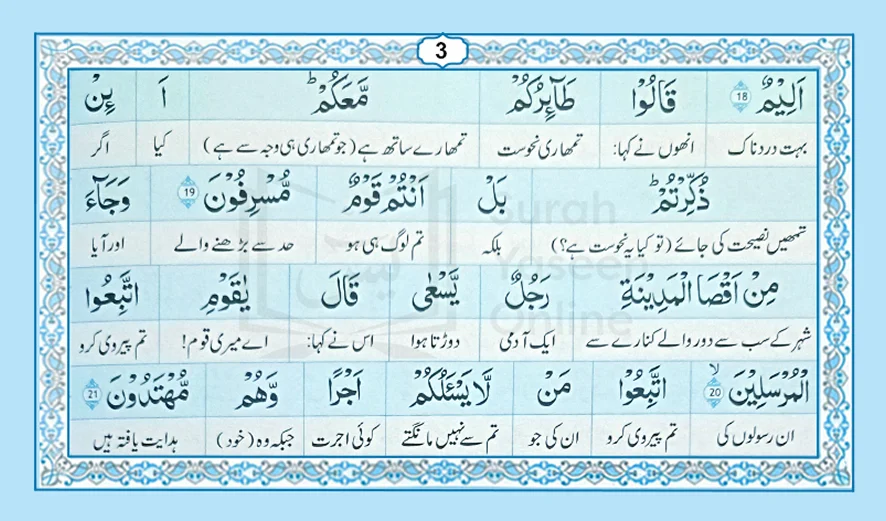 3
اَلِيْمٌ 18 قَالُوْا طَآئِرُكُمْ مَّعَكُمْ ؕ اَ ئِنْ
بہت دردناک انھوں نے کہا: تمھاری نحوست تمھارے ساتھ ہے (جو تمھاری ہی وجہ سے ہے) کیا اگر
ذُكِّرْتُمْ ؕ بَلْ اَنْتُمْ قَوْمٌ مُّسْرِفُوْنَ 19 وَجَآءَ
تمھیں نصیحت کی جائے (تو کیا یہ نحوست ہے؟) بلکہ تم لوگ ہی ہو حد سے بڑھنے والے اور آیا
مِنْ اَقْصَا الْمَدِيْنَةِ رَجُلٌ يَّسْعٰى قَالَ يٰقَوْمِ اتَّبِعُوا
شہر کے سب سے دور والے کنارے سے ایک آدمی دوڑتا ہوا اس نے کہا: اے میری قوم! تم پیروی کرو
الْمُرْسَلِيْنَ ۙ 20 اتَّبِعُوْا مَنْ لَّا يَسْـَٔلُكُمْ اَجْرًا وَّهُمْ مُّهْتَدُوْنَ 21
ان رسولوں کی تم پیروی کرو ان کی جو تم سے نہیں مانگتے کوئی اجرت جبکہ وہ (خود) ہدایت یافتہ ہیں
Surah
Yaseen
Online